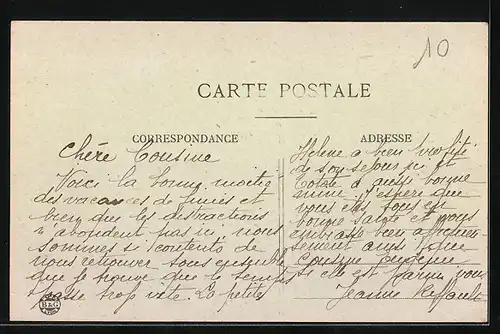 10
CARTE POSTALE
CORRESPONDANCE
Chère Cousine
Voici la bonne moitié
des vacances de finies et
bien que les distractions
n'abondent pas ici, nous
sommes si contents de
nous retrouver tous ensemble
que je trouve que le temps
passe trop vite. La petite
B&G
ADRESSE
Helene a bien profité
de son séjour ici et
Totote a aussi bonne
mine. J'espère que
vous êtes tous en
bonne santé et vous
embrasse bien affectueu-
sement ainsi que
Cousine
si elle est parmi vous
Jeanne